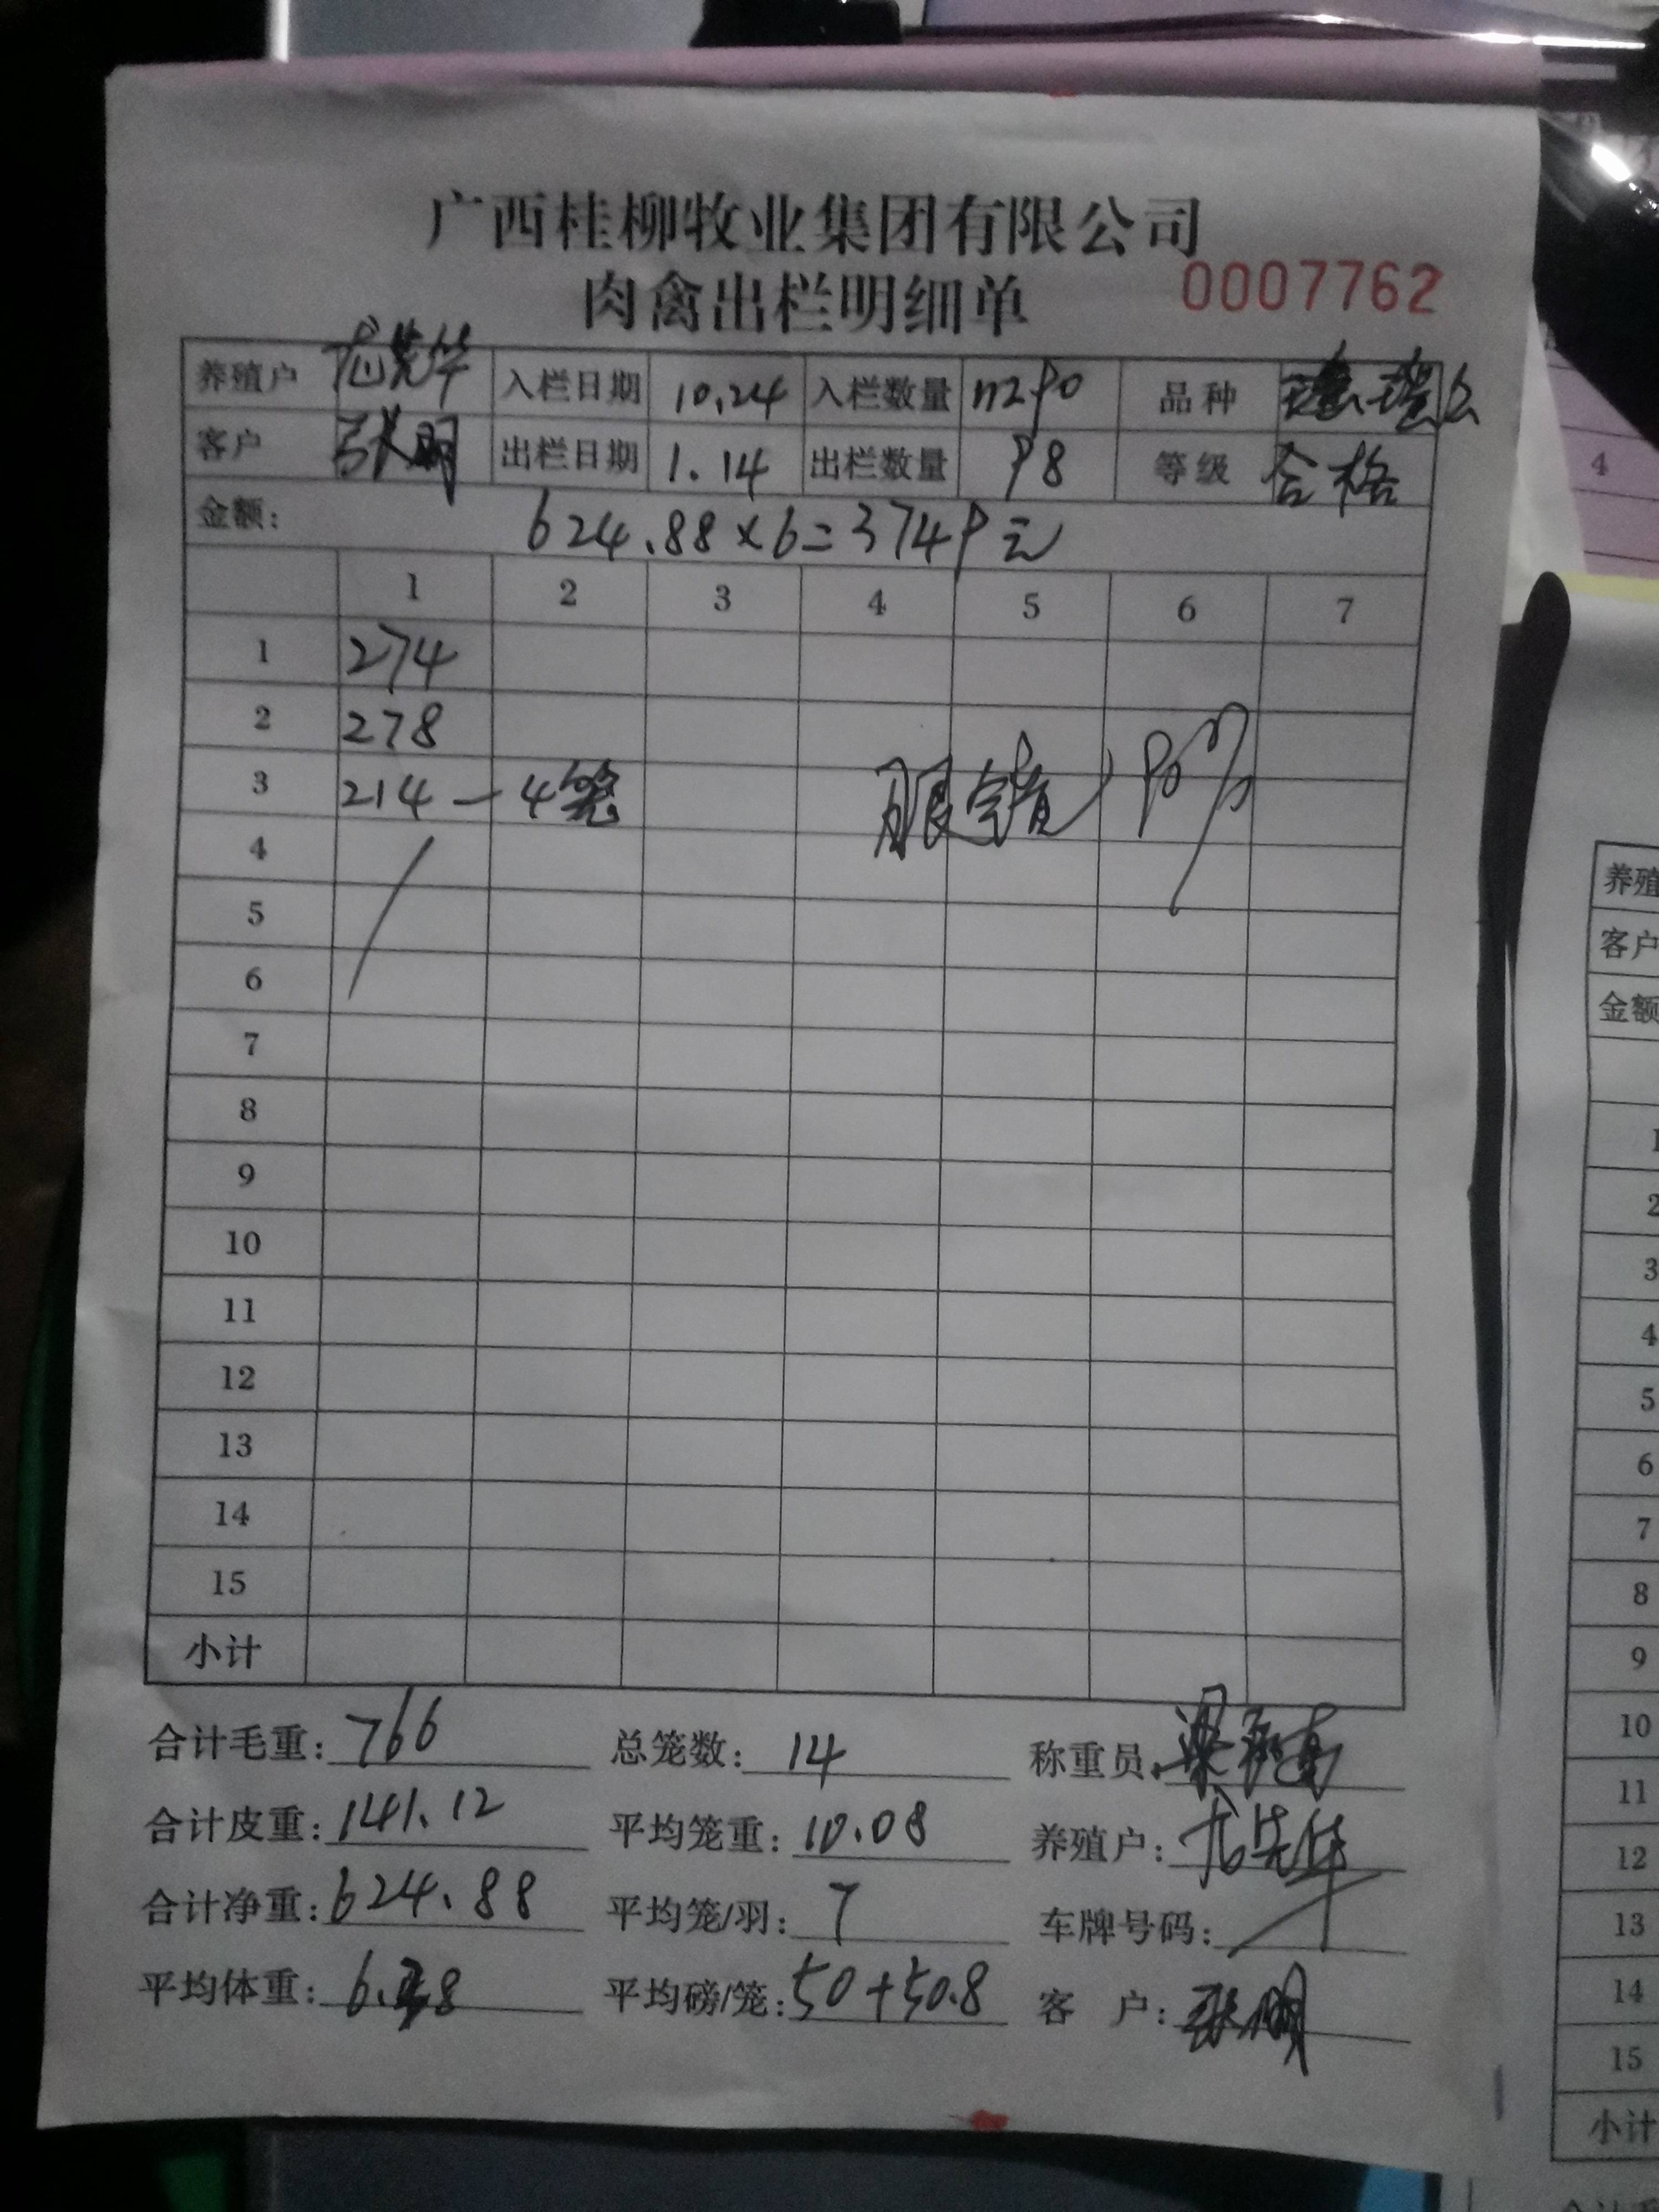 广西桂柳牧业集团有限公司
肉禽出栏明细单 0007762
养殖户 尤先华 入栏日期 10.24 入栏数量 品种
客户 张明 出栏日期 1.14 出栏数量 98 等级 合格
金额: 624.88×6=3749元
1 2 3 4 5 6 7
1 274
2 278
3 214 - 4笼
4
5
6
7
8
9
10
11
12
13
14
15
小计
合计毛重: 766 总笼数: 14 称重员:
合计皮重: 141.12 平均笼重: 10.08 养殖户: 尤先华
合计净重: 624.88 平均笼/羽: 7 车牌号码:
平均体重: 平均磅/笼: 50+50.8 客 户: 张明
4
养殖
客户
金额
1
2
3
4
5
6
7
8
9
10
11
12
13
14
15
小计